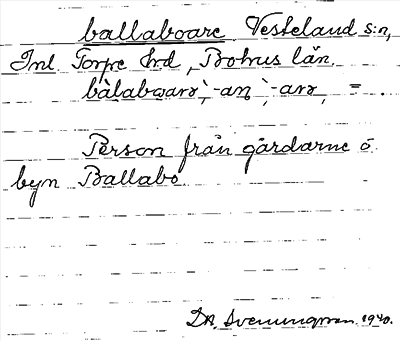 ballaboare Vesteland s:n,
Inl. Torpe hrd, Bohus län.
bàlabwarə̀, -an, -arə, = .
Person från gårdarne å
byn Ballabo.
D.A. Svenungsson. 1940.